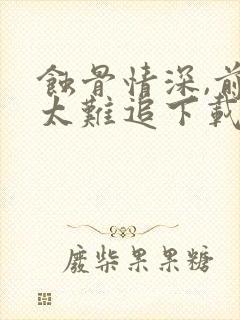 蝕骨情深,前
太難追下載
廢柴果果糖